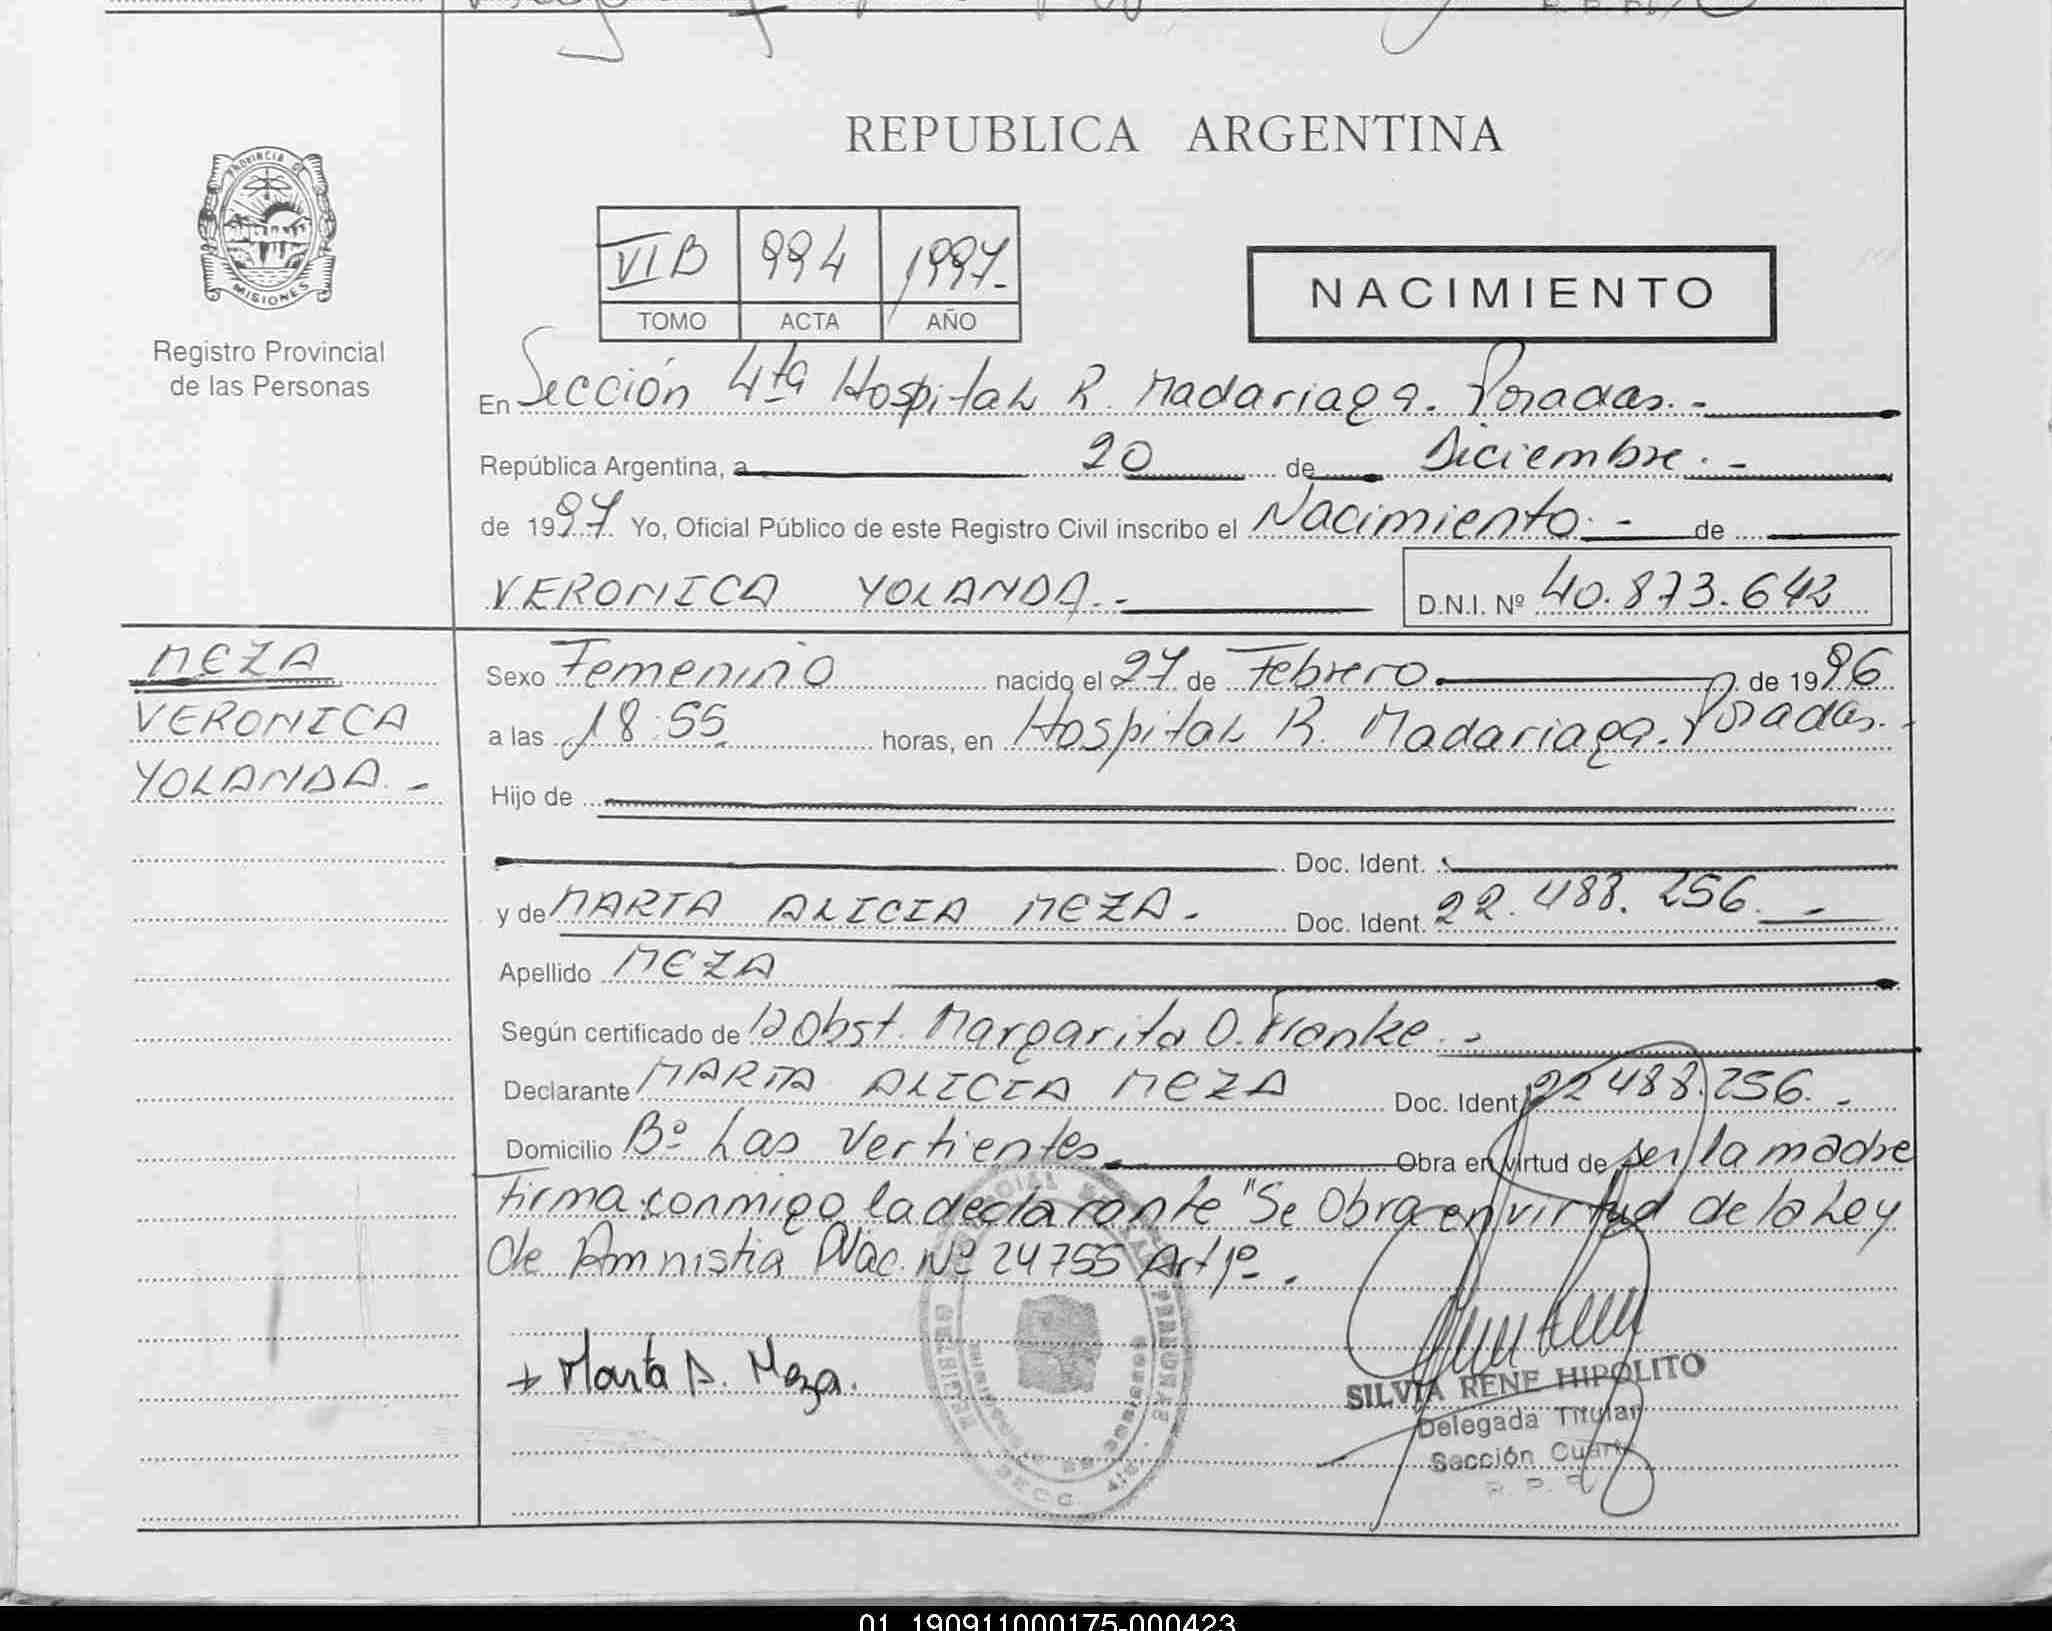 REPUBLICA ARGENTINA
PROVINCIA DE
MISIONES
Registro Provincial
de las Personas
VI B 994 1997.-
TOMO ACTA AÑO
NACIMIENTO
En Sección 4ta Hospital R. Madariaga. Posadas.-
República Argentina, a 20 de Diciembre.-
de 1997 Yo, Oficial Público de este Registro Civil inscribo el Nacimiento.- de
VERONICA YOLANDA.- D.N.I. Nº 40.873.642
MEZA
VERONICA
YOLANDA.-
Sexo Femenino nacido el 27 de Febrero de 1996
a las 18:55 horas, en Hospital R. Madariaga. Posadas.
Hijo de
Doc. Ident.
y de MARTA ALICIA MEZA.- Doc. Ident. 22.488.256.-
Apellido MEZA
Según certificado de la Obst. Margarita O. Franke.-
Declarante MARTA ALICIA MEZA Doc. Ident. 22.488.256.-
Domicilio Bº Las Vertientes Obra en virtud de ser la madre
Firma conmigo la declarante "Se Obra en virtud de la Ley
de Amnistia Nac. Nº 24755 Art 1º.
+ Marta A. Meza.
SILVIA RENE HIPOLITO
Delegada Titular
Sección Cuarta
R. P. P.
01 190911000175-000423